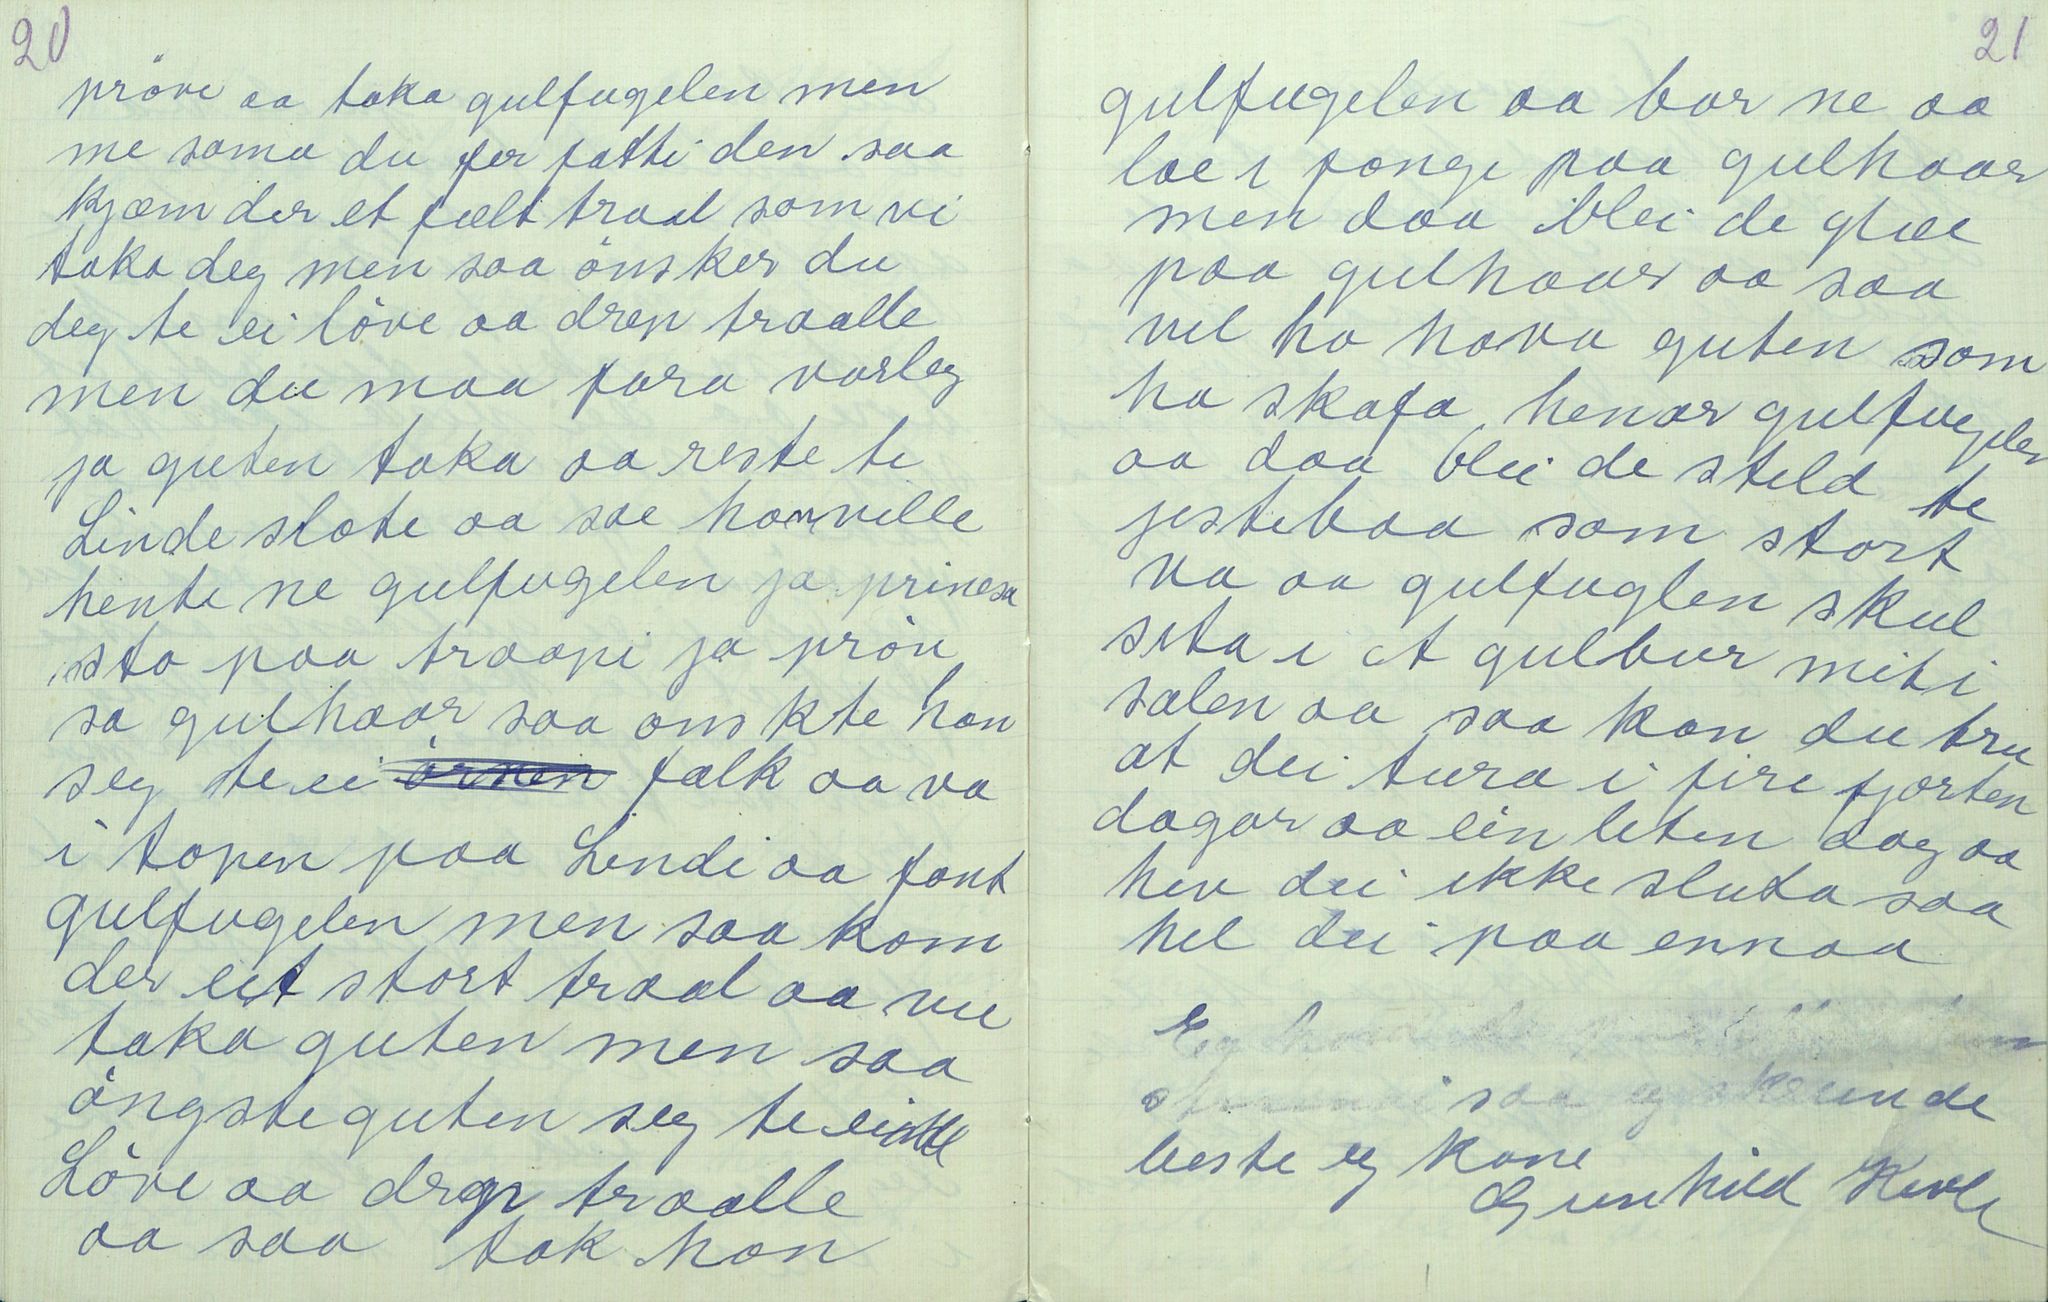 20
pröve aa taka gulfugelen men
me sama du fer fatti den saa
kjæm der et fælt traal som vi
taka deg men saa önsker du
deg te ei löve aa drep traalle
men du maa fara varleg
ja guten taka aa reste te
Linde slote aa sae han ville
hente ne gulfugelen ja prinesa
sto paa traapi ja prön
sa gulhaar saa onskte han
seg te ei örnen falk aa va
i topen paa Lindi aa fant
gulfugelen men saa kom
der eit stort traal aa vil
taka guten men saa
öngste guten seg te ei
Löve aa drep traalle
aa saa tok han
21
gulfugelen aa bar ne aa
lae i fange paa gulhaar
men daa blei de glæe
paa gulhaar aa saa
vil ho hava guten som
ha skafa henar gulfugelen
aa daa blei de steld te
jestebaa som stort
va aa gulfuglen skul
sita i et gulbur mit i
salen aa saa kan du tru
at dei tura i fire fjorten
dagar aa ein liten dag aa
hev dei ikke sluta saa
hel dei paa ennaa
Eg
saa eg
beste eg kane
Gunhild Kivle